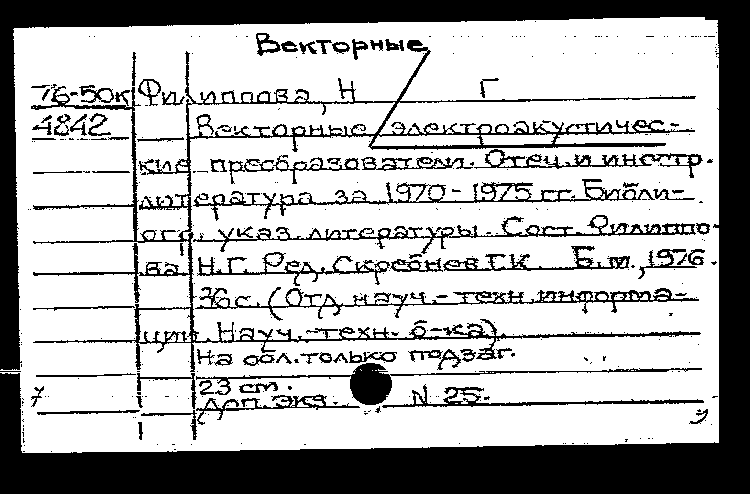 Векторные
76-50к Филиппова, Н Г
4842 Векторные электроакустичес-
кие преобразователи. Отеч. и иностр.
литература за 1970-1975 гг. Библи-
огр. указ. литературы. Сост. Филиппо-
ва Н.Г. Ред. Скребнев Г.К. Б.м., 1976.
36 с. (Отд. науч.-техн. информа-
ции. Науч.-техн. б-ка).
На обл. только подзаг.
23 см.
7 Доп. экз. N 25.